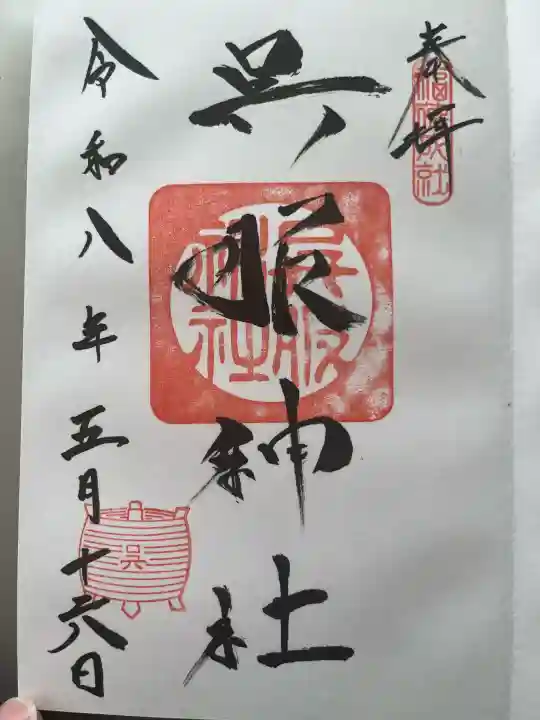 奉拝
呉服神社
呉服神社
呉
令和八年五月十六日